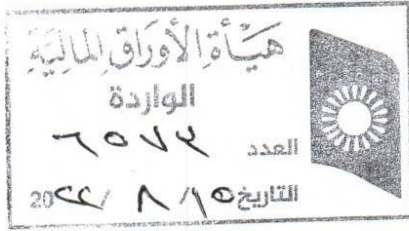 هيأة الأوراق المالية
الواردة
العدد ٦٥٧٣
التاريخ ١٥/ ٨ /20٢٢